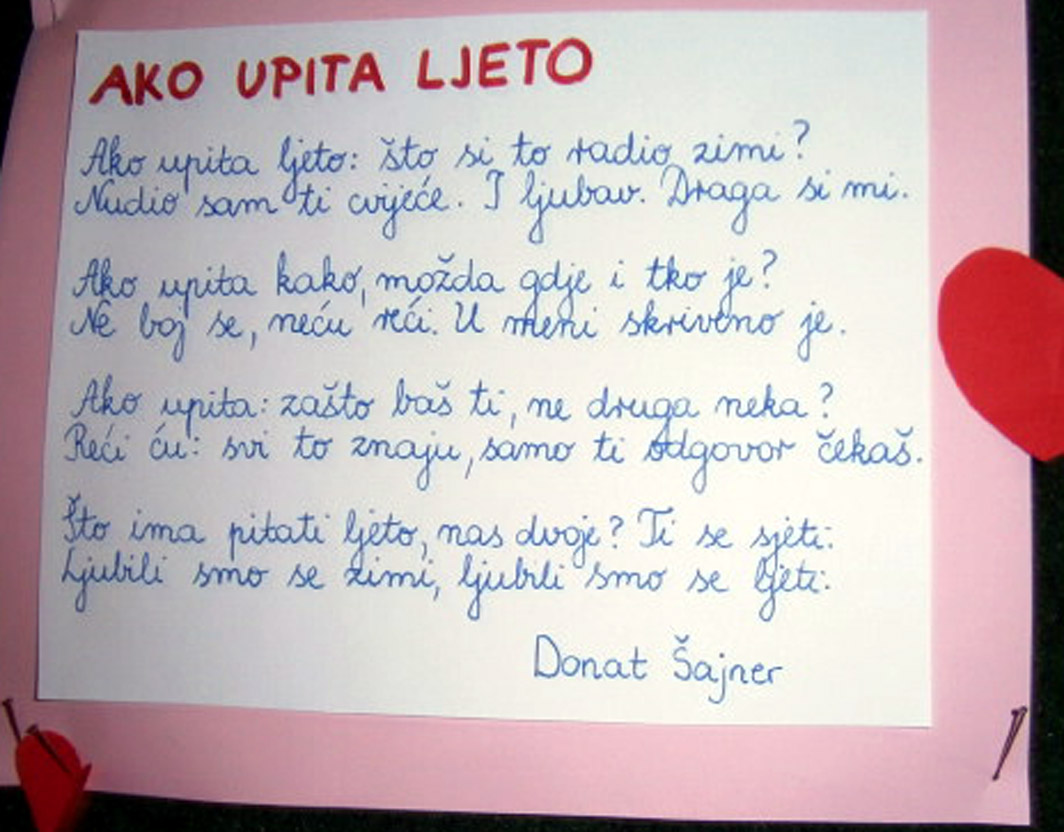 AKO UPITA LJETO
Ako upita ljeto: što si to radio zimi?
Nudio sam ti cvijeće. I ljubav. Draga si mi.
Ako upita kako, možda gdje i tko je?
Ne boj se, neću reći. U meni skriveno je.
Ako upita: zašto baš ti, ne druga neka?
Reći ću: svi to znaju, samo ti odgovor čekaš.
Što ima pitati ljeto, nas dvoje? Ti se sjeti:
Ljubili smo se zimi, ljubili smo se ljeti.
Donat Šajner